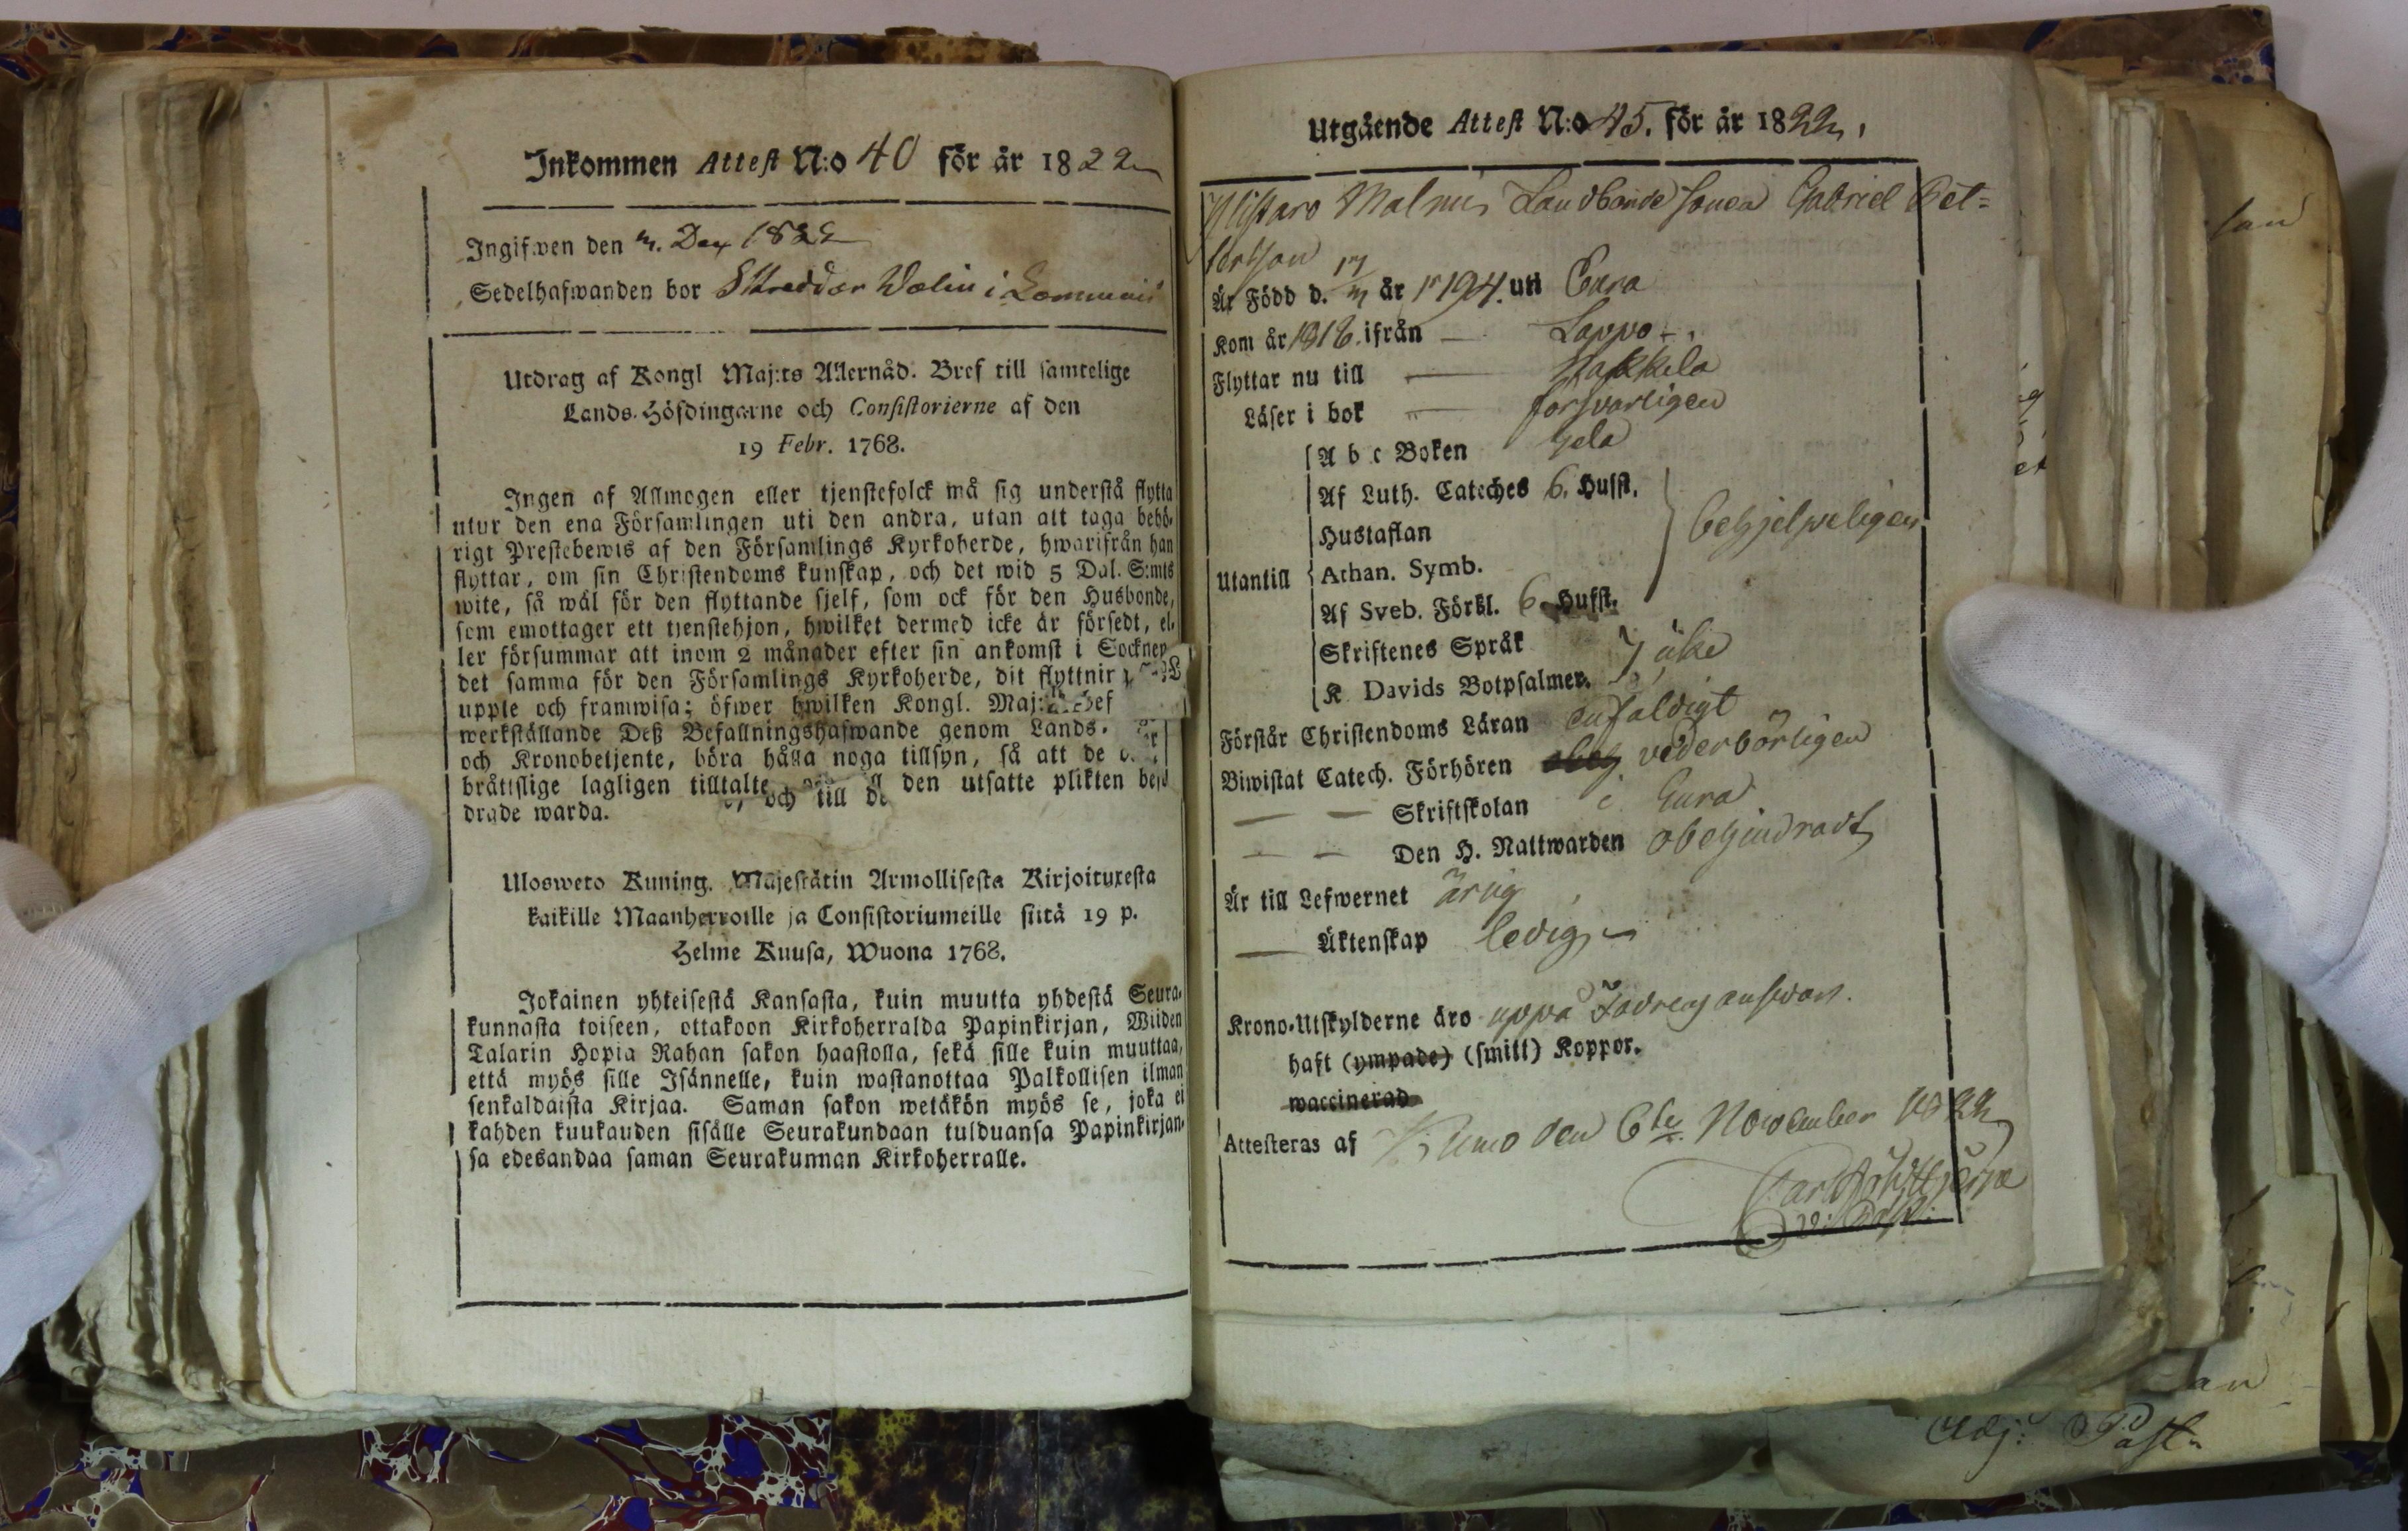 Inkommen Attest N:o 40 för år 1822
Ingifwen den Dec 1822
Sedelhafwanden bor Skreddar Wolin i
Utdrag af Kongl Maj:ts Allernåd. Bref till samtelige
Lands-Höfdingarne och Consistorierne af den
19 Febr. 1768.
Ingen af Allmogen eller tjenstefolck må sig understå flytta
utur den ena Församlingen uti den andra, utan att taga behö-
rigt Prestebewis af den Församlings Kyrkoherde, hwarifrån han
flyttar, om sin Christendoms kunskap, och det wid 5 Dal. S:mts
wite, så wäl för den flyttande sjelf, som ock för den Husbonde,
som emottager ett tjenstehjon, hwilket dermed icke är försedt, el-
ler försummar att inom 2 månader efter sin ankomst i Socknen
det samma för den Församlings Kyrkoherde, dit flyttnin
uppte och framwisa; öfwer hwilken Kongl. Maj:ts Bef
werkställande Deß Befallningshafwande genom Lands-
och Kronobetjente, böra hålla noga tillsyn, så att de
bråttslige lagligen tilltalte, och till den utsatte plikten bef
drade warda.
Ulosweto Kuning. Majestätin Armollisesta Kirjoituxesta
kaikille Maanherroille ja Consistoriumeille siitä 19 p.
Helme Kuusa, Wuona 1768.
Jokainen yhteisestä Kansasta, kuin muutta yhdestä Seura-
kunnasta toiseen, ottakoon Kirkoherralda Papinkirjan, Wiiden
Talarin Hopia Rahan sakon haastolla, sekä sille kuin muuttaa,
että myös sille Isännelle, kuin wastanottaa Palkollisen ilman
senkaldaista Kirjaa. Saman sakon wetäkön myös se, joka ei
kahden kuukauden sisälle Seurakundaan tulduansa Papinkirjan-
sa edesandaa saman Seurakunnan Kirkoherralle.
Utgående Attest N:o 45. för år 1822,
Ylistaro Malmis Landbonde sonen Gabriel Pet=
tersson
Är Född d. 17 år 1794. uti Eura
Kom år 1816. ifrån — Lappo
Flyttar nu till — Hakkila
Läser i bok — försvarligen
A b c Boken hela
Af Luth. Cateches 6. Hufst.
Hustaflan behjelpeligen
Utantill Athan. Symb.
Af Sveb. Förkl. 6. Hufst.
Skriftenes Språk
K Davids Botpsalmer.
Förstår Christendoms Läran enfaldigt
Biwistat Catech. Förhören vederbörligen
— — Skriftskolan i Eura
— — Den H. Nattwarden obehindradt
Är till Lefwernet ärlig
— Äktenskap ledig
Krono-Utskylderne äro uppå Fadrens answar.
haft (ympade) (smitt) Koppor.
waccinerad
Attesteras af Kumo den 6te November 1822
Adj: Past.